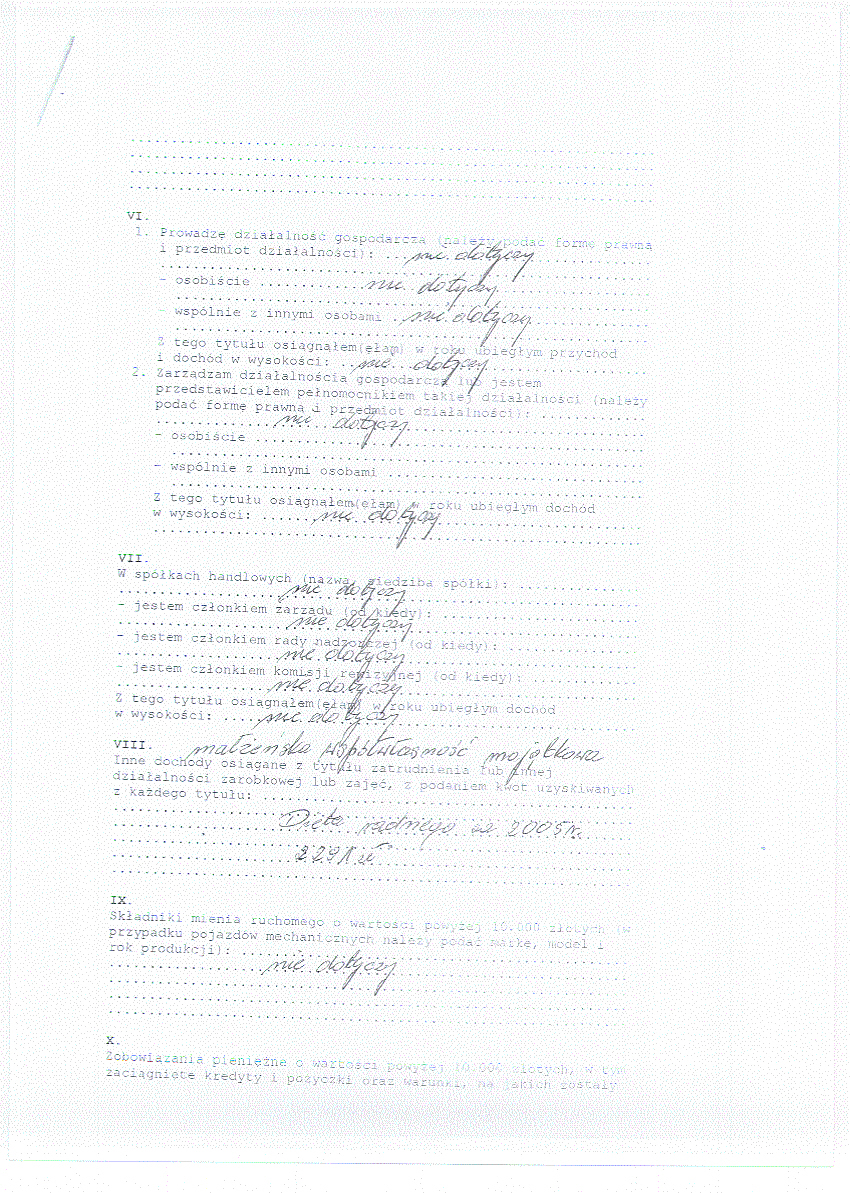 VI.
1. Prowadzę działalność gospodarczą (należy podać formę prawną
i przedmiot działalności): ...nie dotyczy
- osobiście ............nie dotyczy
- wspólnie z innymi osobami ..nie dotyczy
Z tego tytułu osiągnąłem(ęłam) w roku ubiegłym przychód
i dochód w wysokości: ..nie dotyczy
2. Zarządzam działalnością gospodarczą lub jestem
przedstawicielem pełnomocnikiem takiej działalności (należy
podać formę prawną i przedmiot działalności): ............
nie dotyczy
- osobiście ............
- wspólnie z innymi osobami ............
Z tego tytułu osiągnąłem(ęłam) w roku ubiegłym dochód
w wysokości: ......nie dotyczy
VII.
W spółkach handlowych (nazwa, siedziba spółki): ............
nie dotyczy
- jestem członkiem zarządu (od kiedy): ............
nie dotyczy
- jestem członkiem rady nadzorczej (od kiedy): ............
nie dotyczy
- jestem członkiem komisji rewizyjnej (od kiedy): ............
nie dotyczy
Z tego tytułu osiągnąłem(ęłam) w roku ubiegłym dochód
w wysokości: ....nie dotyczy
VIII. małżeńska współwłasność majątkowa
Inne dochody osiągane z tytułu zatrudnienia lub innej
działalności zarobkowej lub zajęć, z podaniem kwot uzyskiwanych
z każdego tytułu: ............
Dieta radnego za 2005 r.
2291 zł
IX.
Składniki mienia ruchomego o wartości powyżej 10.000 złotych (w
przypadku pojazdów mechanicznych należy podać markę, model i
rok produkcji): ............
nie dotyczy
X.
Zobowiązania pieniężne o wartości powyżej 10.000 złotych, w tym
zaciągnięte kredyty i pożyczki oraz warunki, na jakich zostały